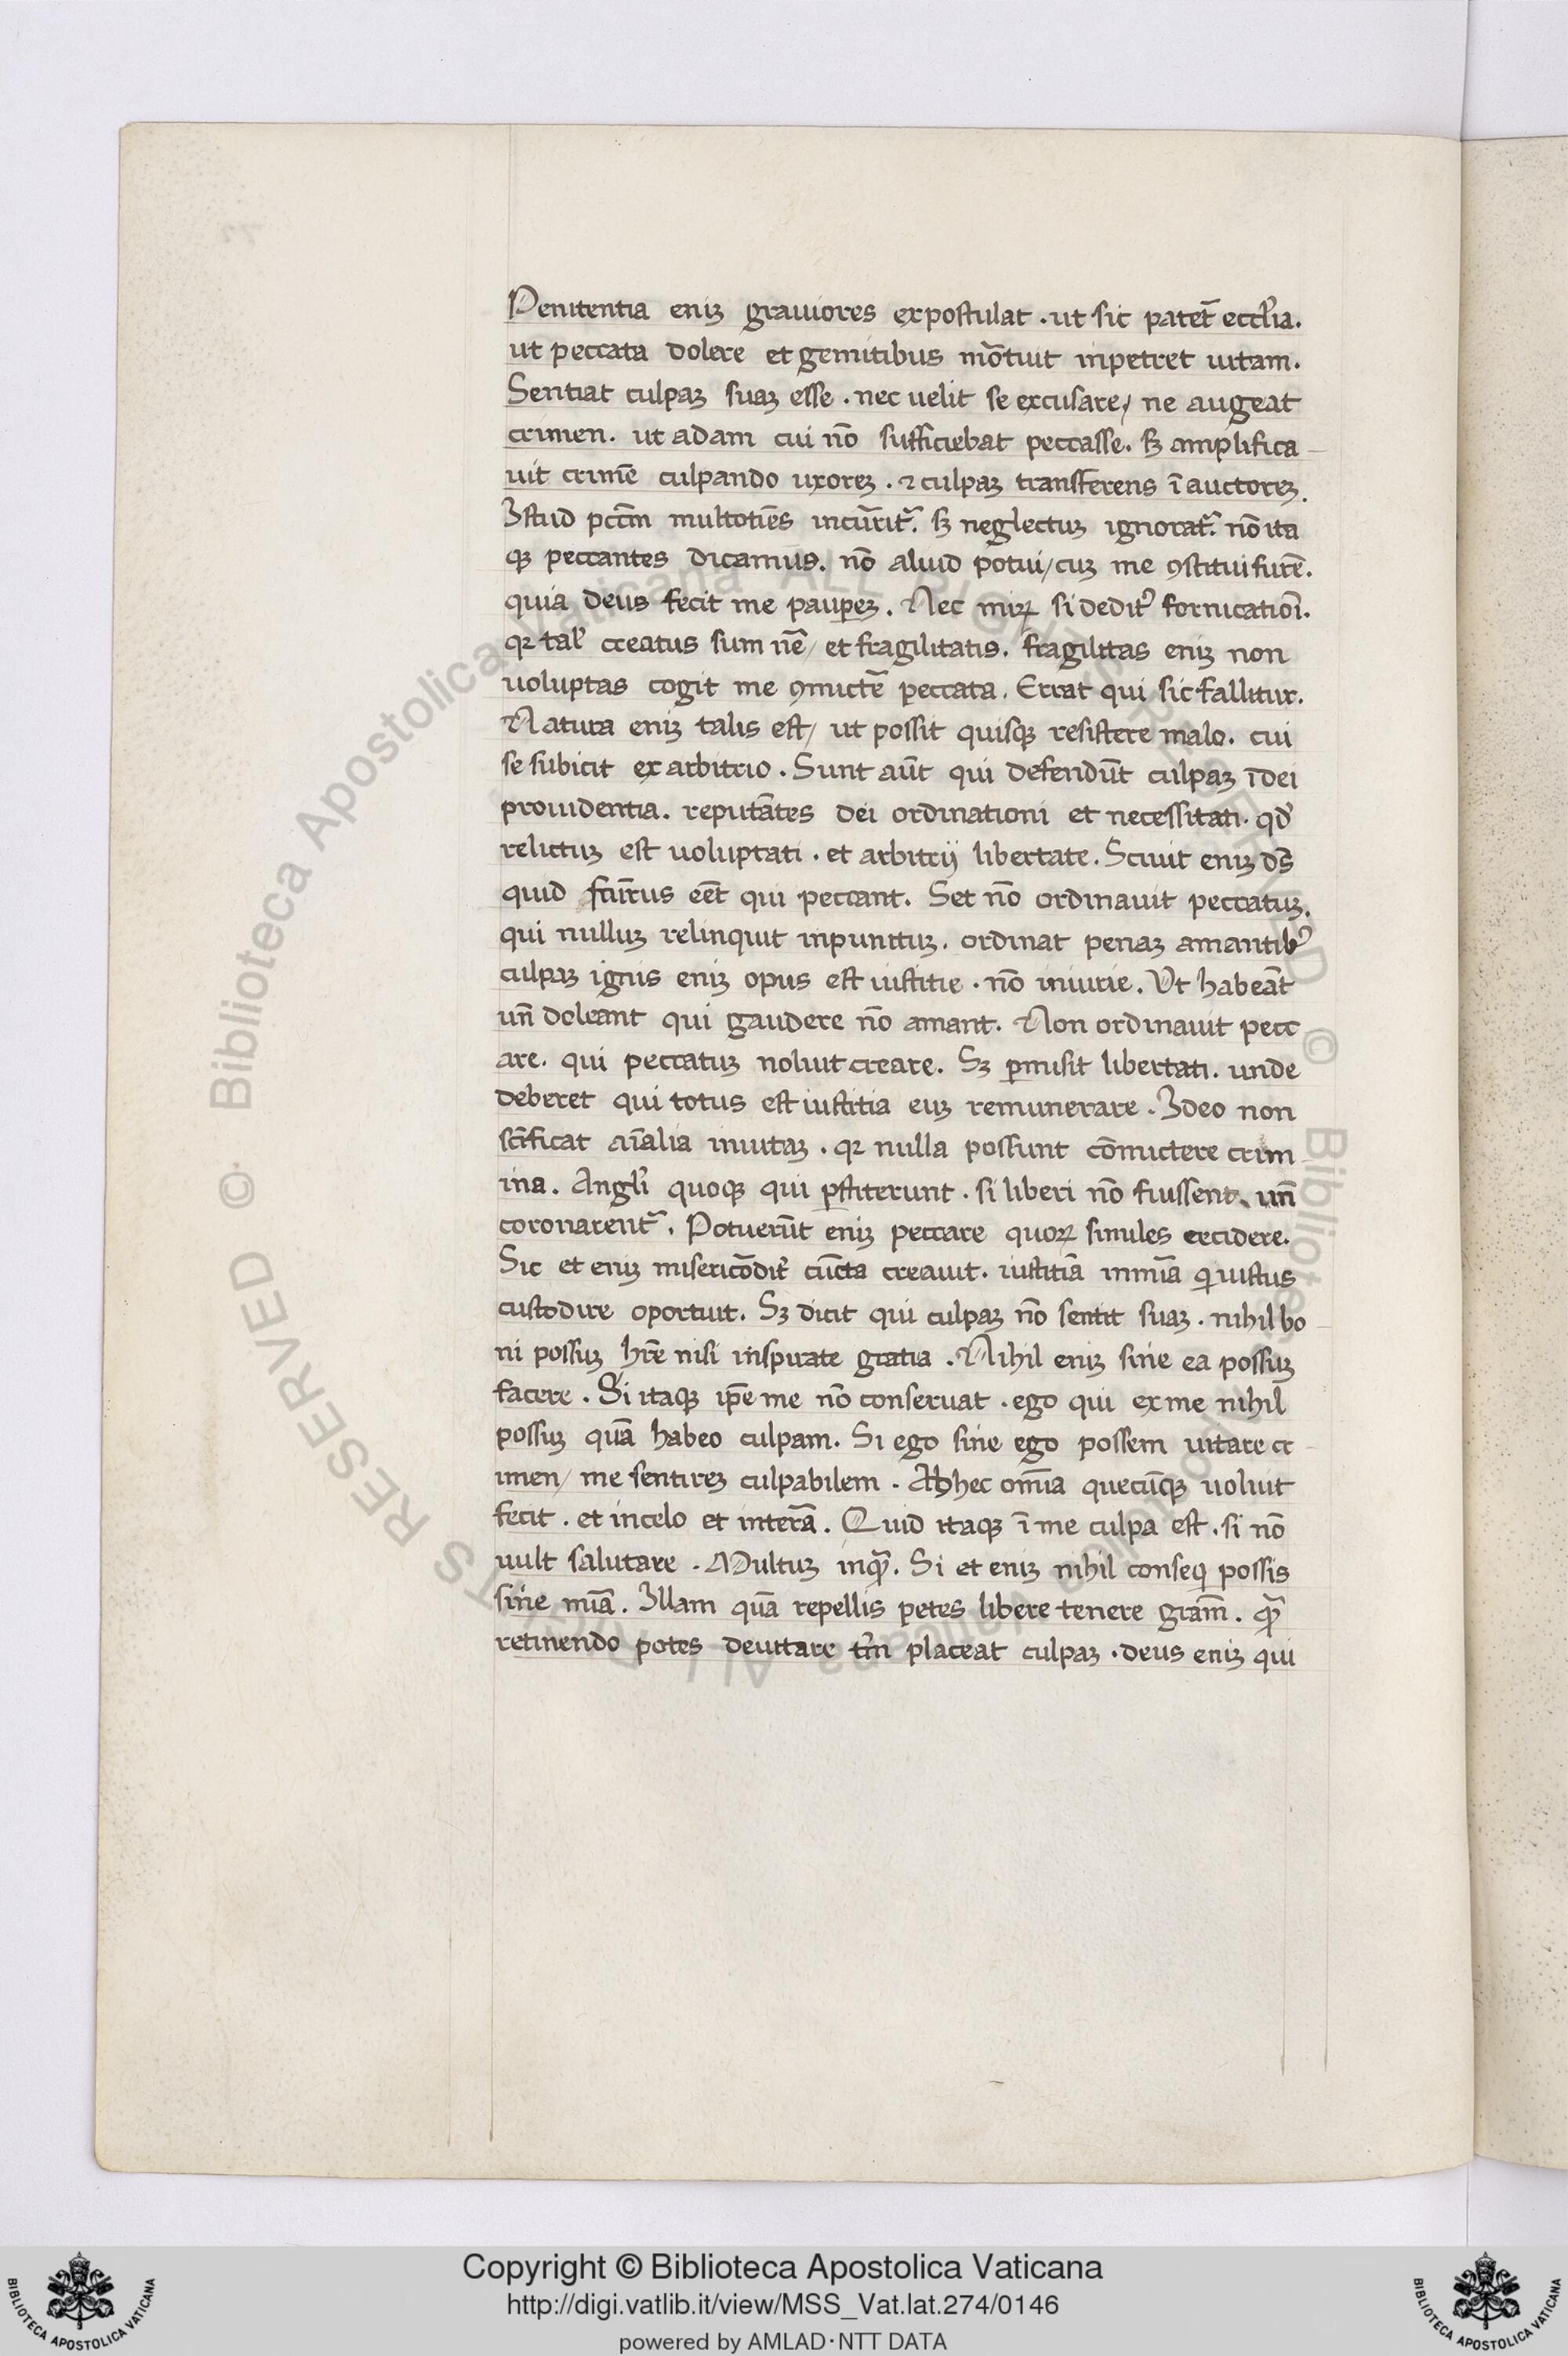 Penitentia eniꝫ grauiores expostulat . ut sic patet̄ eccl̓ia.
ut peccata dolere et gemitibus mōtiut inpetret uitam.
Sentiat culpaꝫ suaꝫ esse . nec uelit se excusare / ne augeat
crimen . ut adam cui nō sufficiebat peccasse. sꝫ amplifica
uit crimē culpando uxoreꝫ . ⁊ culpaꝫ transferens ī auctoreꝫ.
Istud pccm̄ multotiēs incūrit᷑. sꝫ neglectuꝫ ignorat᷑. nō ita
qꝫ peccantes dicamus. nō aliud potui / cuꝫ me ꝯstitui furē.
quia deus fecit me paupeꝫ . Nec miꝝ si dedit᷑ fornicatiōi.
qꝛ tal̓ creatus sum nē / et fragilitatis. fragilitas eniꝫ non
uoluptas cogit me ꝯmictē peccata . Errat qui sic fallitur.
Natura eniꝫ talis est / ut possit quisqꝫ resistere malo. cui
se subicit ex arbitrio . Sunt aūt qui defendūt culpaꝫ ī dei
prouidentia. reputātes dei ordinationi et necessitati. qd̓
relictuꝫ est uoluptati . et arbitrij libertate . Sciuit eniꝫ ds̄
quid fcūrus eēt qui peccant. Set nō ordinauit peccatuꝫ.
qui nulluꝫ relinquit inpunituꝫ . ordinat penaꝫ amantib᷒
culpaꝫ ignis eniꝫ opus est iustitie . nō iniurie . Ut habeāt
un̄ doleant qui gaudere nō amant . Non ordinauit pecc
are. qui peccatuꝫ noluit creare. Sꝫ ꝑmisit libertati. unde
deberet qui totus est iustitia euꝫ remunerare . Ideo non
scīficat aīalia inuitaꝫ . qꝛ nulla possunt cōmictere crim
ina. Angl̓i quoqꝫ qui ꝑstiterunt . si liberi nō fuissent. un̄
coronarent᷑. Potuerūt eniꝫ peccare quoꝝ similes cecidere.
Sic et eniꝫ misericōdit᷑ cūcta creauit . iustitiā in mīa ꝙ iustus
custodire oportuit. Sꝫ dicit qui culpaꝫ nō sentit suaꝫ . nihil bo
ni possuꝫ hr̄e nisi inspirate gratia . Nihil eniꝫ sine ea possuꝫ
facere . Si itaqꝫ ip̄e me nō conseruat . ego qui ex me nihil
possuꝫ quā habeo culpam. Si ego sine ego possem uitare cr
imen / me sentireꝫ culpabilem . Ad hec om̄ia quecūqꝫ uoluit
fecit . et in celo et in terā . Quid itaqꝫ ī me culpa est . si nō
uult saluare . Multuꝫ inqͣ . Si et eniꝫ nihil conseqi possis
sine mīa . Illam quā repellis petes libere tenere grām. qͣ
retinendo potes deuitare tm̄ placeat culpaꝫ . deus eniꝫ qui
Copyright © Biblioteca Apostolica Vaticana
http://digi.vatlib.it/view/MSS_Vat.lat.274/0146
powered by AMLAD·NTT DATA